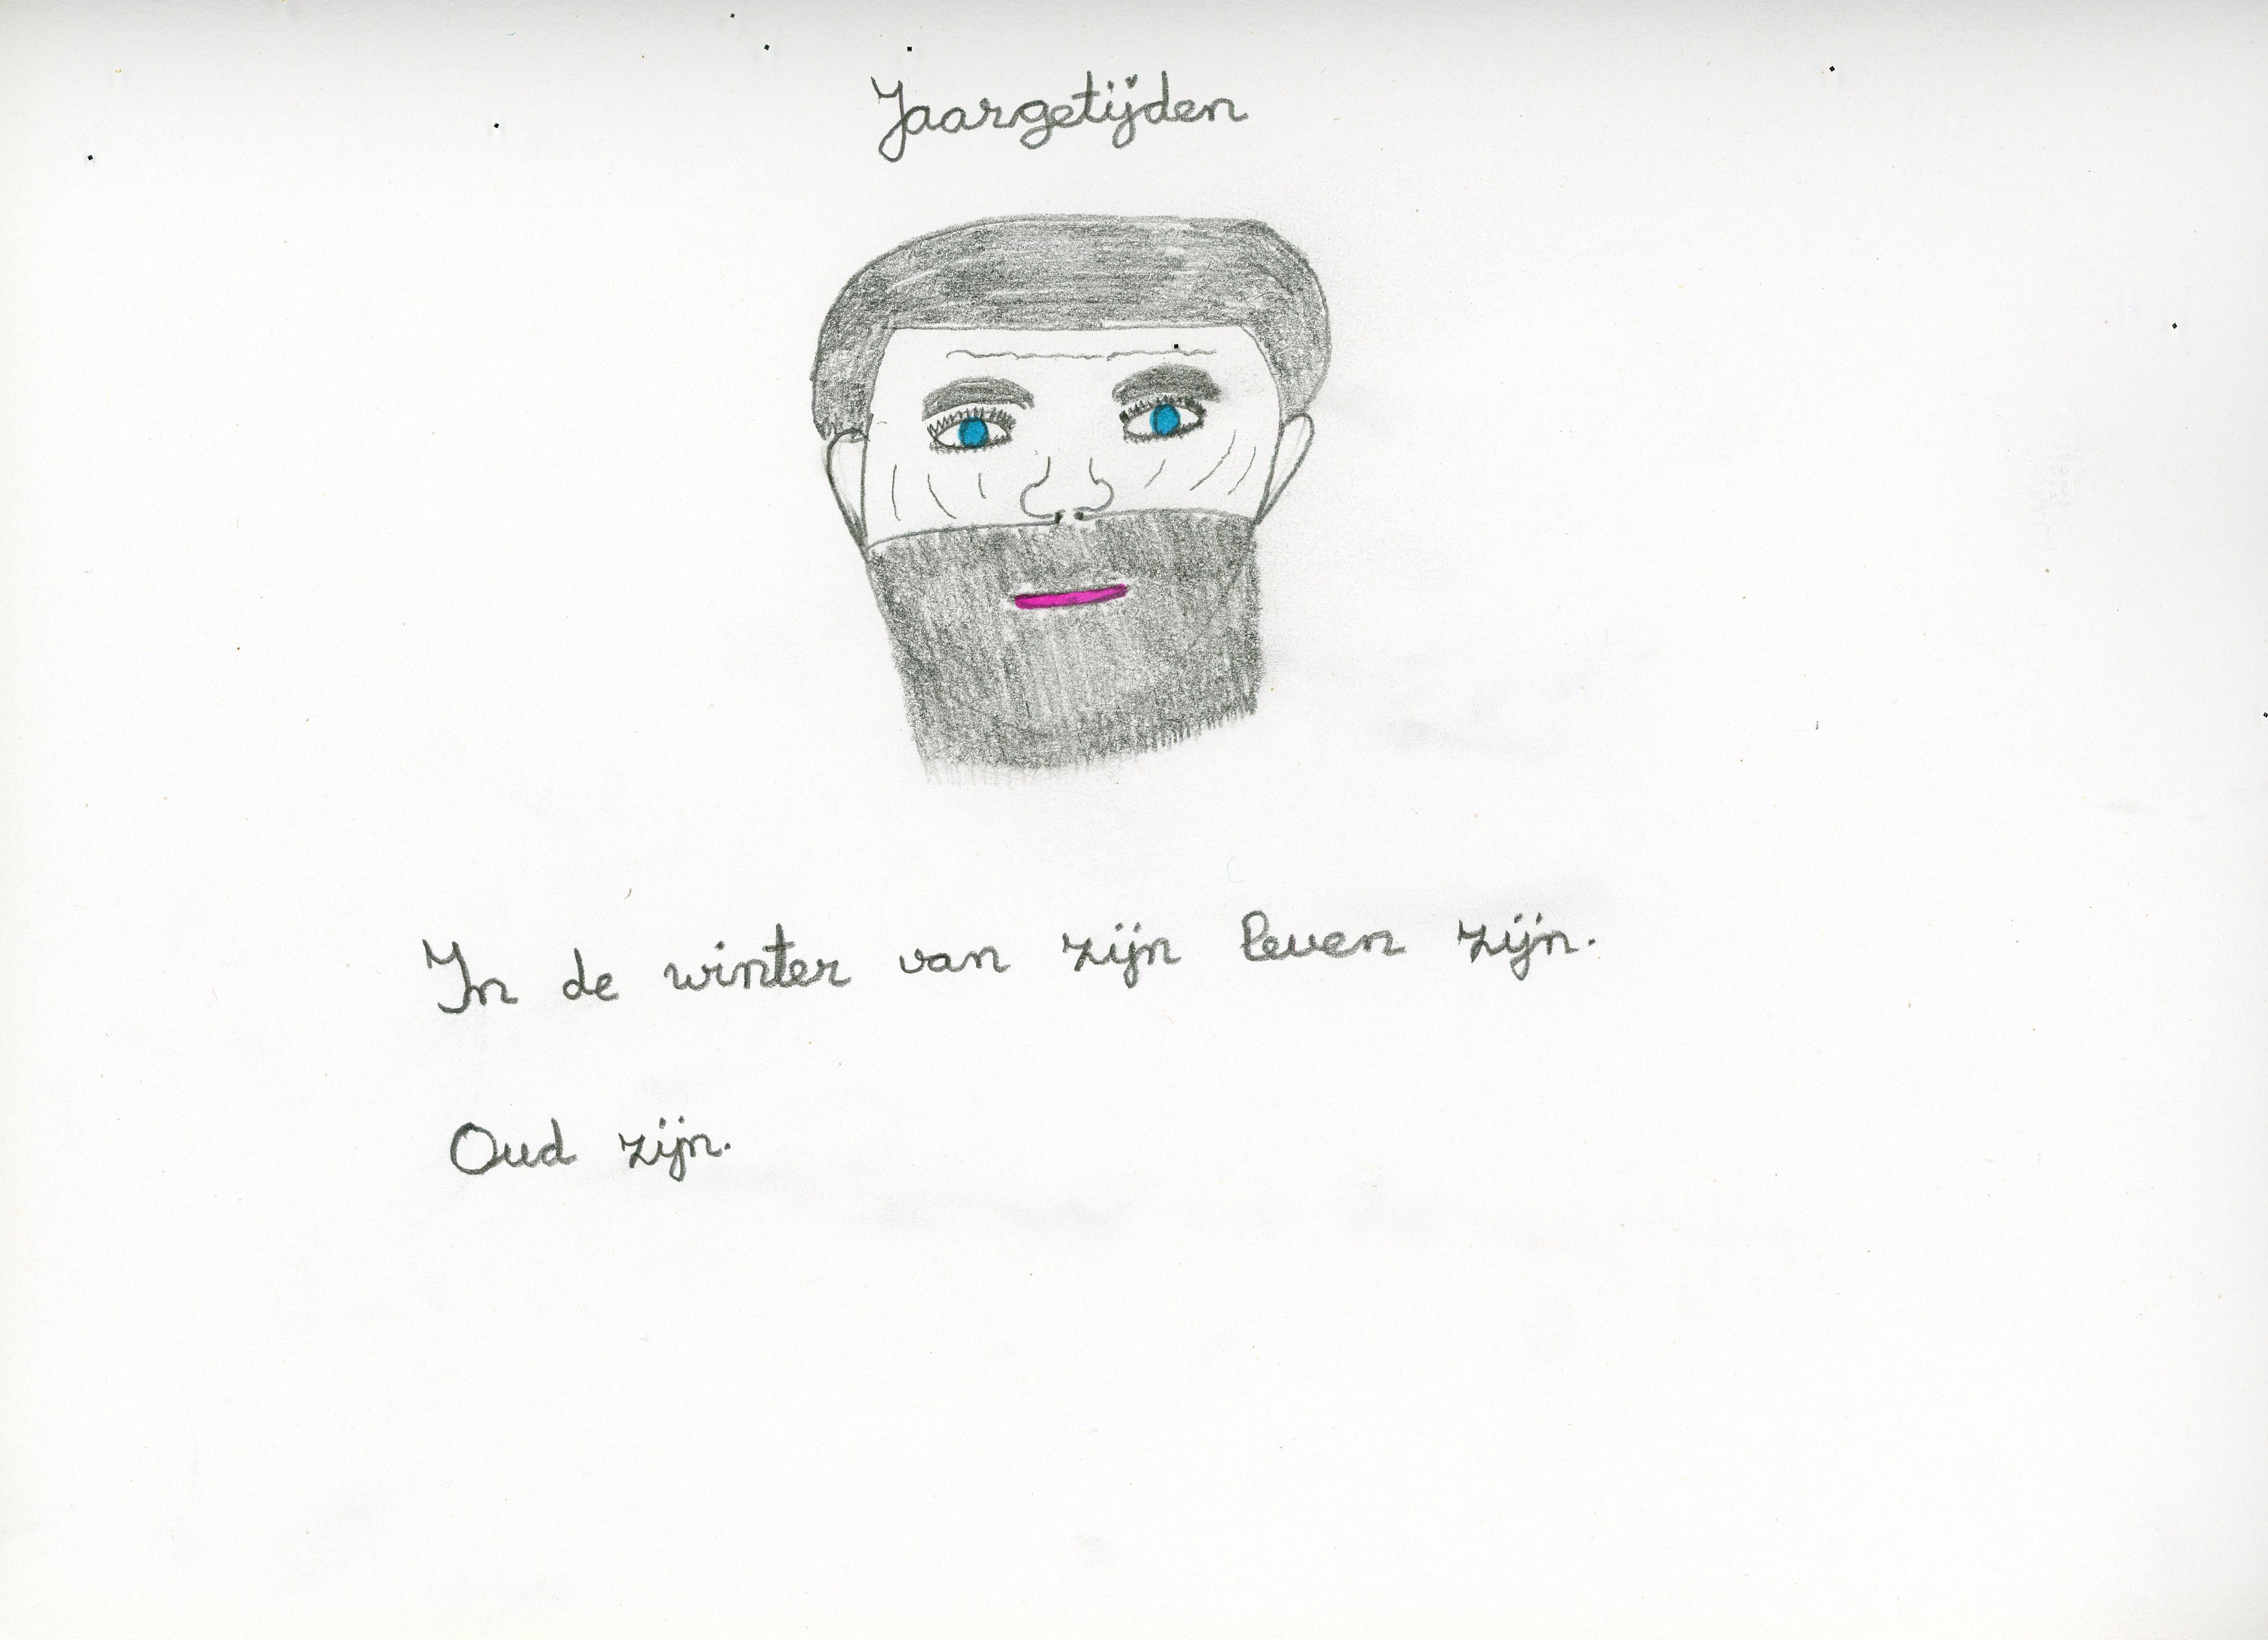 Jaargetijden
In de winter van zijn leven zijn.
Oud zijn.